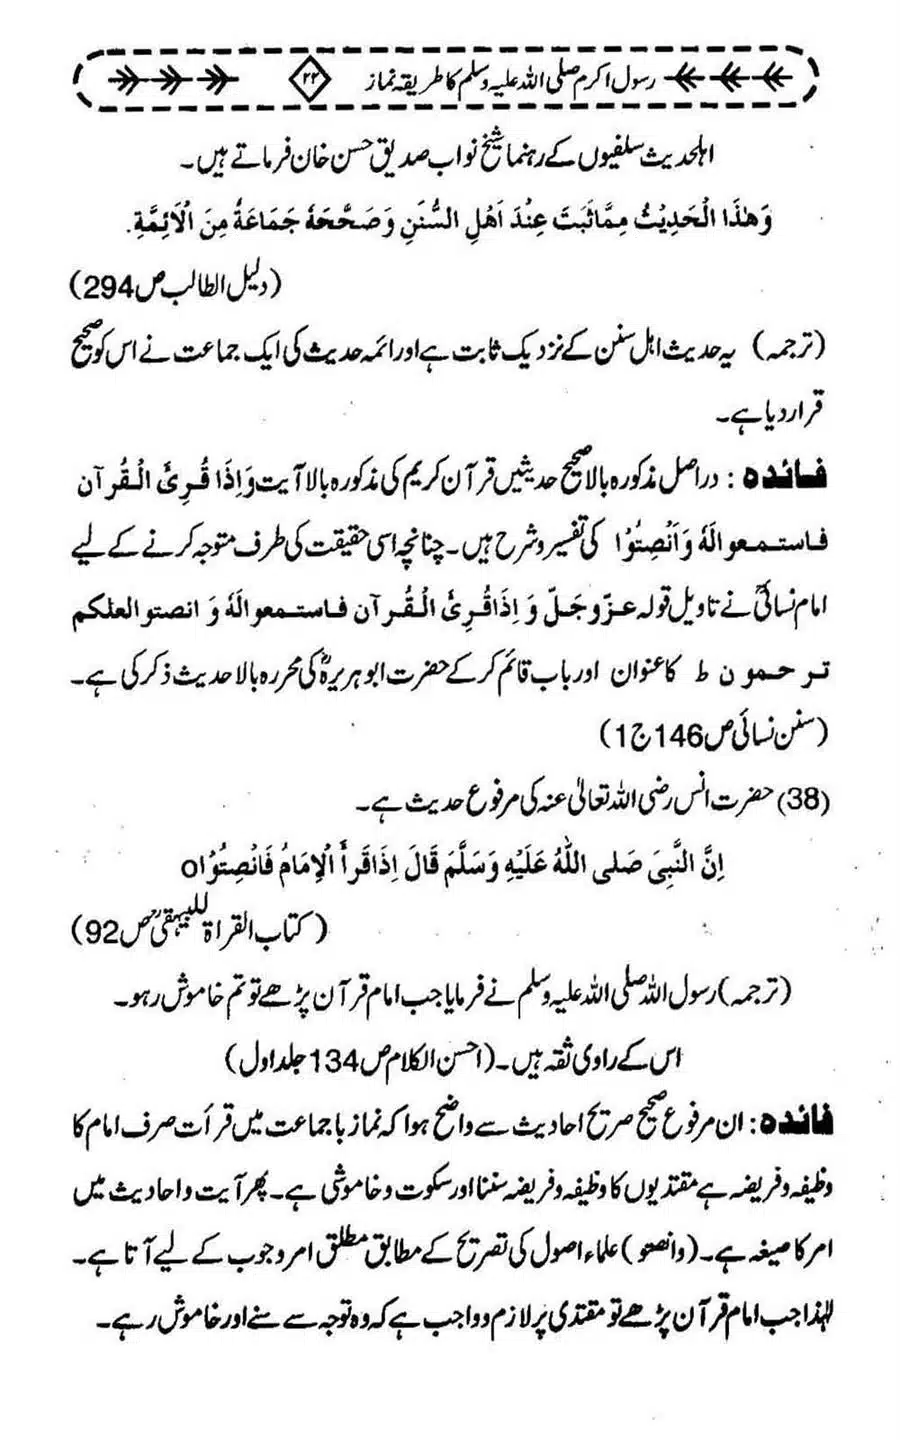 رسول اکرم صلی اللہ علیہ وسلم کا طریقہ نماز ۴۴
اہلحدیث سلفیوں کے رہنما شیخ نواب صدیق حسن خان فرماتے ہیں۔
وَهٰذَا الْحَدِيْثُ مِمَّا ثَبَتَ عِنْدَ اَهْلِ السُّنَنِ وَصَحَّحَهٗ جَمَاعَةٌ مِنَ الْاَئِمَّةِ.
(دلیل الطالب ص 294)
(ترجمہ) یہ حدیث اہل سنن کے نزدیک ثابت ہے اور ائمہ حدیث کی ایک جماعت نے اس کو صحیح
قرار دیا ہے۔
فائدہ : دراصل مذکورہ بالا صحیح حدیثیں قرآن کریم کی مذکورہ بالا آیت وَاِذَا قُرِئَ الْقُرآن
فاستمعوا لَهٗ وَاَنْصِتُوْا کی تفسیر و شرح ہیں۔ چنانچہ اسی حقیقت کی طرف متوجہ کرنے کے لیے
امام نسائیؒ نے تاویل قولہ عزّوجَلّ وَاِذَا قُرِئَ الْقُرآن فاستمعوا لَهٗ وَانصتوا لعلکم
ترحمون ط کا عنوان اور باب قائم کر کے حضرت ابوہریرہؓ کی محررہ بالا حدیث ذکر کی ہے۔
(سنن نسائی ص 146 ج 1)
(38) حضرت انس رضی اللہ تعالیٰ عنہ کی مرفوع حدیث ہے۔
اِنَّ النَّبِیَ صَلی اللّٰهُ عَلَيْهِ وَسَلَّمَ قَالَ اِذَا قَرأَ الْاِمَامُ فَانْصِتُوْا o
(کتاب القراۃ للبیہقیؒ ص 92)
(ترجمہ) رسول اللہ صلی اللہ علیہ وسلم نے فرمایا جب امام قرآن پڑھے تو تم خاموش رہو۔
اس کے راوی ثقہ ہیں۔ (احسن الکلام ص 134 جلد اول)
فائدہ : ان مرفوع صحیح صریح احادیث سے واضح ہوا کہ نماز با جماعت میں قرأت صرف امام کا
وظیفہ و فریضہ ہے مقتدیوں کا وظیفہ و فریضہ سننا اور سکوت و خاموشی ہے۔ پھر آیت و احادیث میں
امر کا صیغہ ہے۔ (وانصتو) علماء اصول کی تصریح کے مطابق مطلق امر وجوب کے لیے آتا ہے۔
لہٰذا جب امام قرآن پڑھے تو مقتدی پر لازم و واجب ہے کہ وہ توجہ سے سنے اور خاموش رہے۔